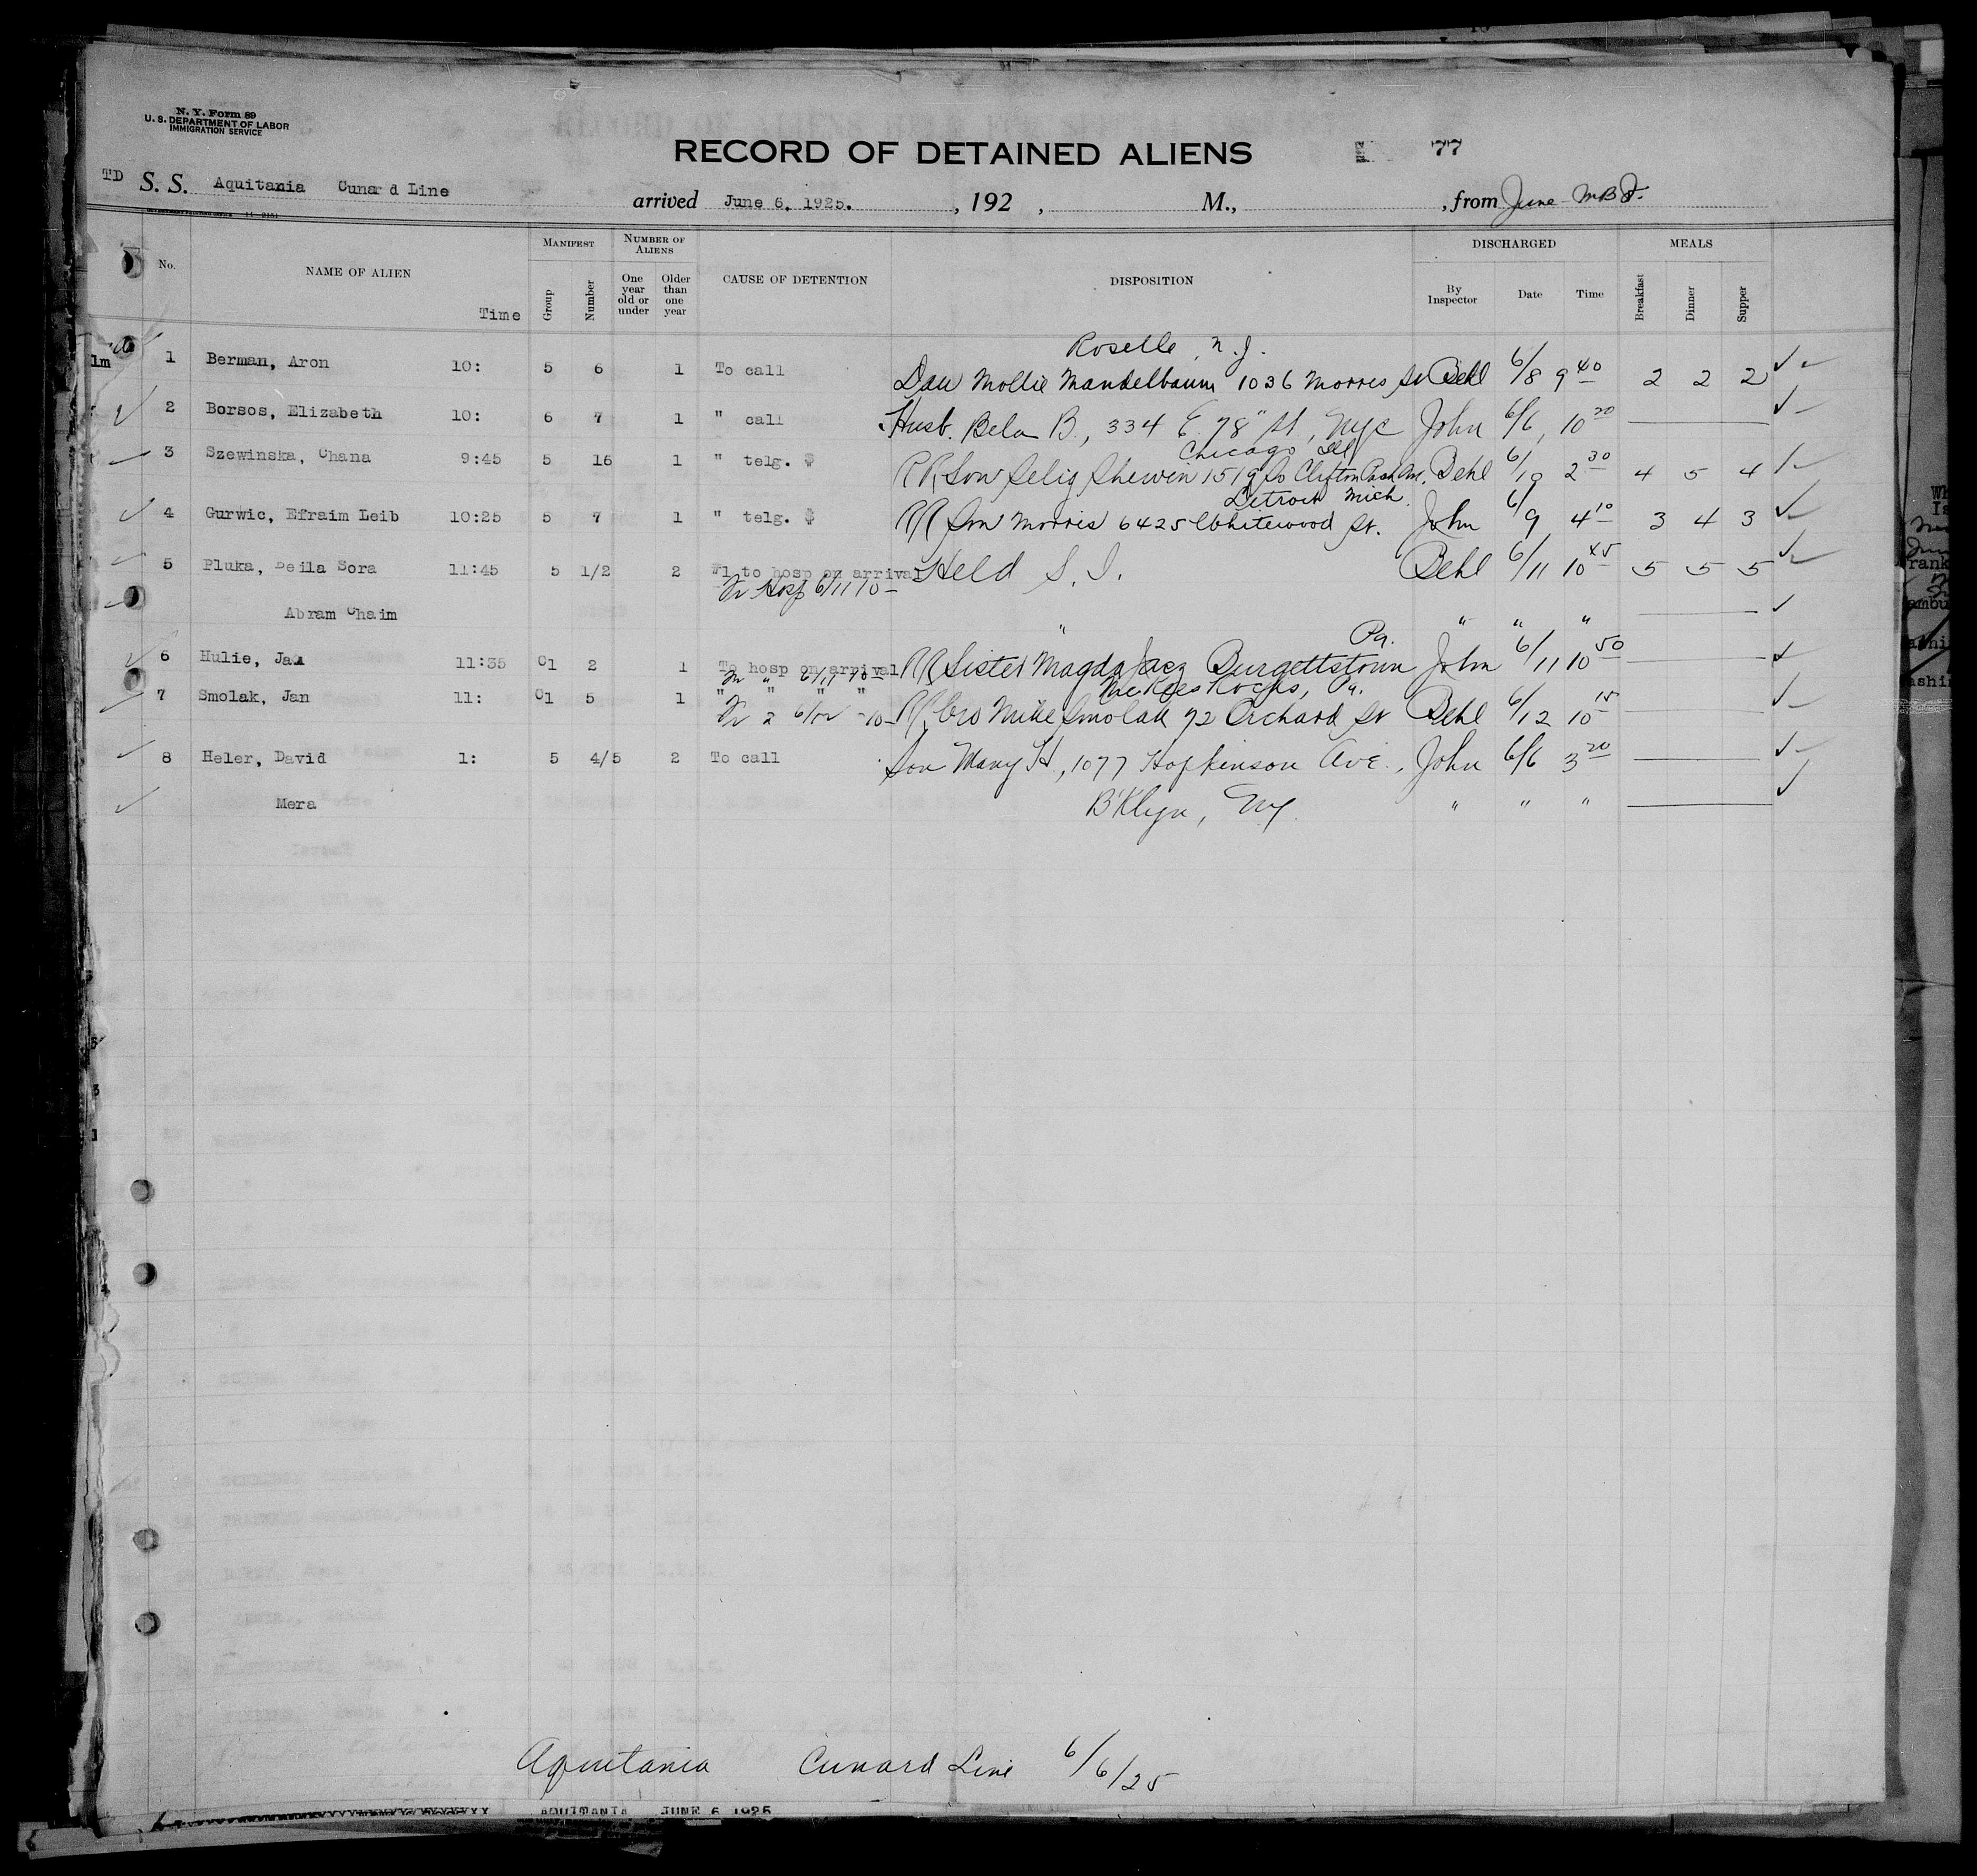 N. Y. Form 89
U. S. DEPARTMENT OF LABOR
IMMIGRATION SERVICE
RECORD OF DETAINED ALIENS 77
TD S. S. Aquitania Cunard Line arrived June 6, 1925. , 192 , M., , from June
No. NAME OF ALIEN Time MANIFEST Group Number NUMBER OF ALIENS One year old or under Older than one year CAUSE OF DETENTION DISPOSITION DISCHARGED By Inspector Date Time MEALS Breakfast Dinner Supper
Roselle, N. J.
1 Berman, Aron 10: 5 6 1 To call Dau Mollie Mandelbaum 1036 Morris St Behl 6/8 9 40 2 2 2
2 Borsos, Elizabeth 10: 6 7 1 " call Husb. Bela B., 334 E. 78" St, NYC John 6/6, 10 20
Chicago Ill
3 Szewinska, Chana 9:45 5 16 1 " telg. $ RR Son Selig Shewin 1519 So Clifton Park Ave. Behl 6/10 2 30 4 5 4
Detroit Mich.
4 Gurwic, Efraim Leib 10:25 5 7 1 " telg. $ RR Son Morris 6425 Whitewood St. John 6/9 4 10 3 4 3
5 Pluka, Beila Sora 11:45 5 1/2 2 #1 to hosp on arrival Held S. I. Behl 6/11 10 45 5 5 5
Fr Hosp 6/11 10
Abram Chaim " " " "
Pa.
6 Hulie, Jan 11:35 C1 2 1 To hosp on arrival RR Sister Magda Burgettstown John 6/11 10 50
Fr " 6/11 10
McKees Rocks, Pa.
7 Smolak, Jan 11: C1 5 1 " " " " RR bro Mike Smolak 72 Orchard St Behl 6/12 10 15
Fr 2 6/12 10
8 Heler, David 1: 5 4/5 2 To call Son Many H., 1077 Hopkinson Ave., John 6/6 3 20
Mera B'Klyn, NY. " " "
Aquitania Cunard Line 6/6/25
AQUITANIA JUNE 6 1925